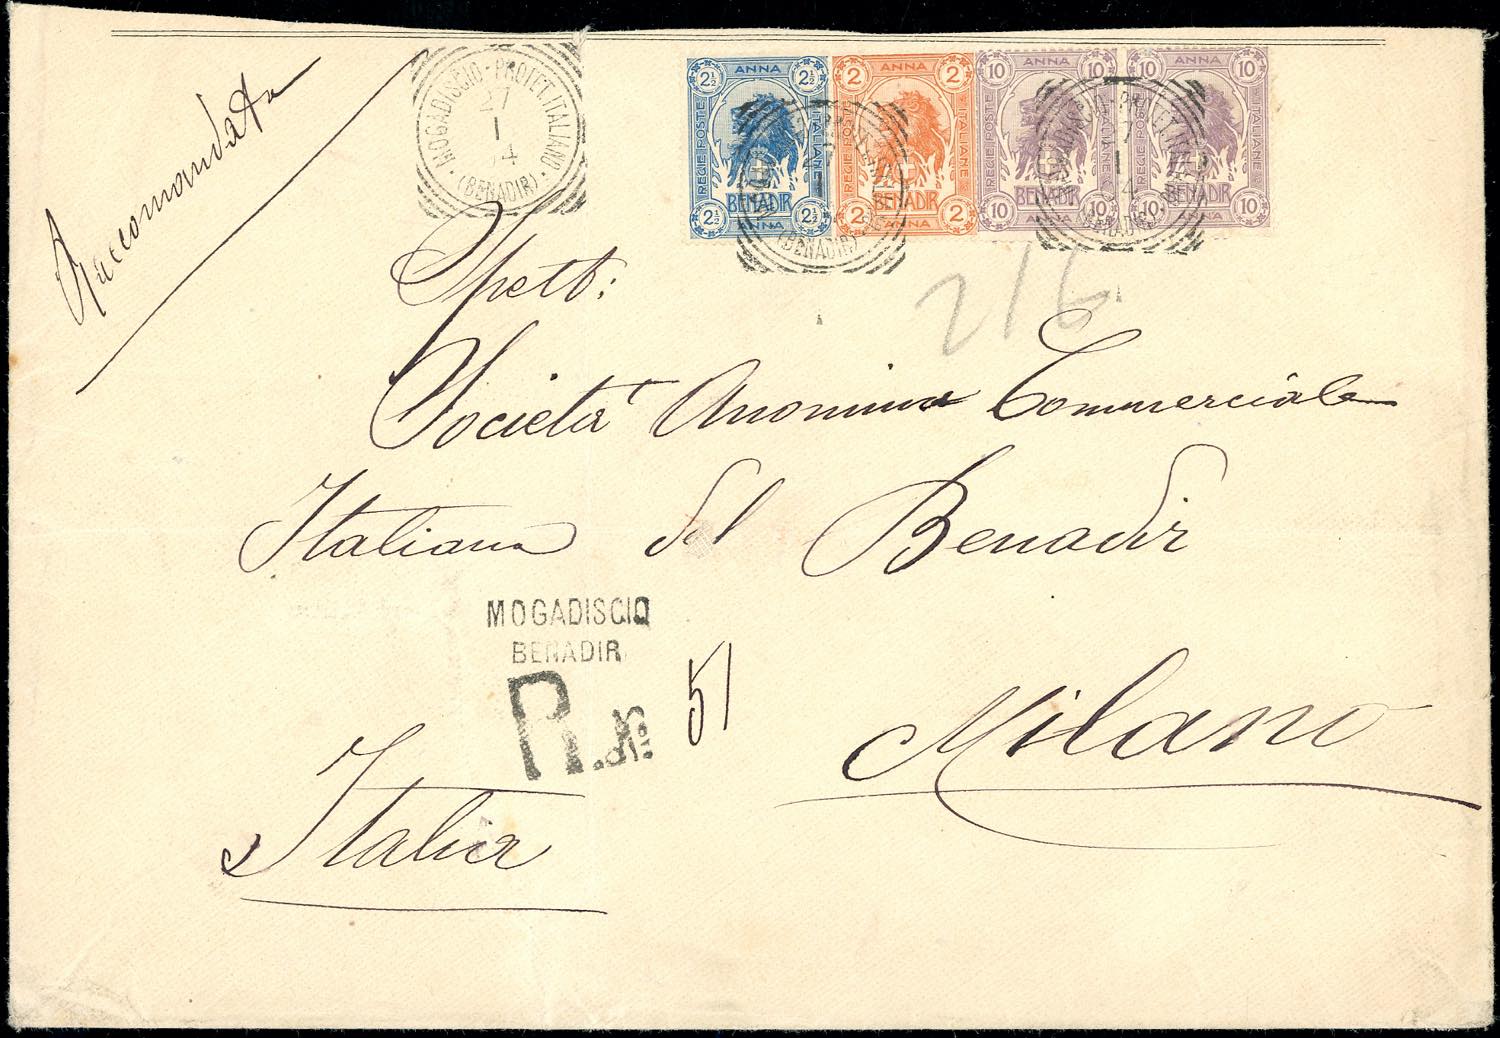 Raccomandata
MOGADISCIO - PROTET. ITALIANO
27
1
04
(BENADIR)
ANNA
2½ 2½
REGIE POSTE ITALIANE
BENADIR
2½ 2½
ANNA
ANNA
2 2
REGIE POSTE ITALIANE
BENADIR
2 2
ANNA
ANNA
10 10
REGIE POSTE ITALIANE
BENADIR
10 10
ANNA
ANNA
10 10
BENADIR
10 10
ANNA
(BENADIR)
216
Spett:
Società Anonima Commerciale
Italiana del Benadir
MOGADISCIO
BENADIR
R. No. 51
Milano
Italia